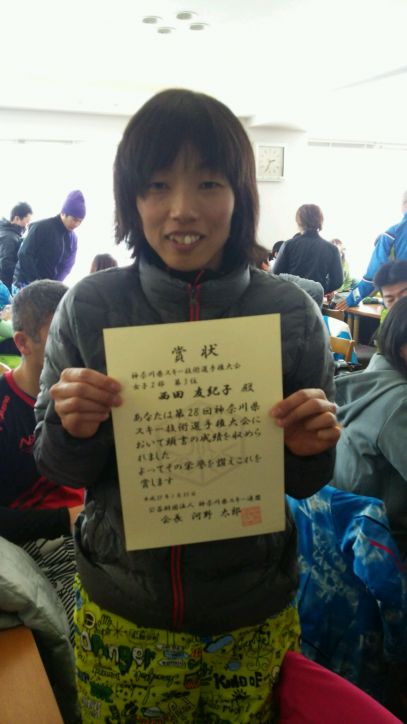 賞状
神奈川県スキー技術選手権大会
女子2部 第3位
西田 友紀子 殿
あなたは第28回神奈川県
スキー技術選手権大会に
おいて頭書の成績を収めら
れました
よってその栄誉を讃えこれを
賞します
公益財団法人 神奈川県スキー連盟
会長 河野 太郎
KIND OF